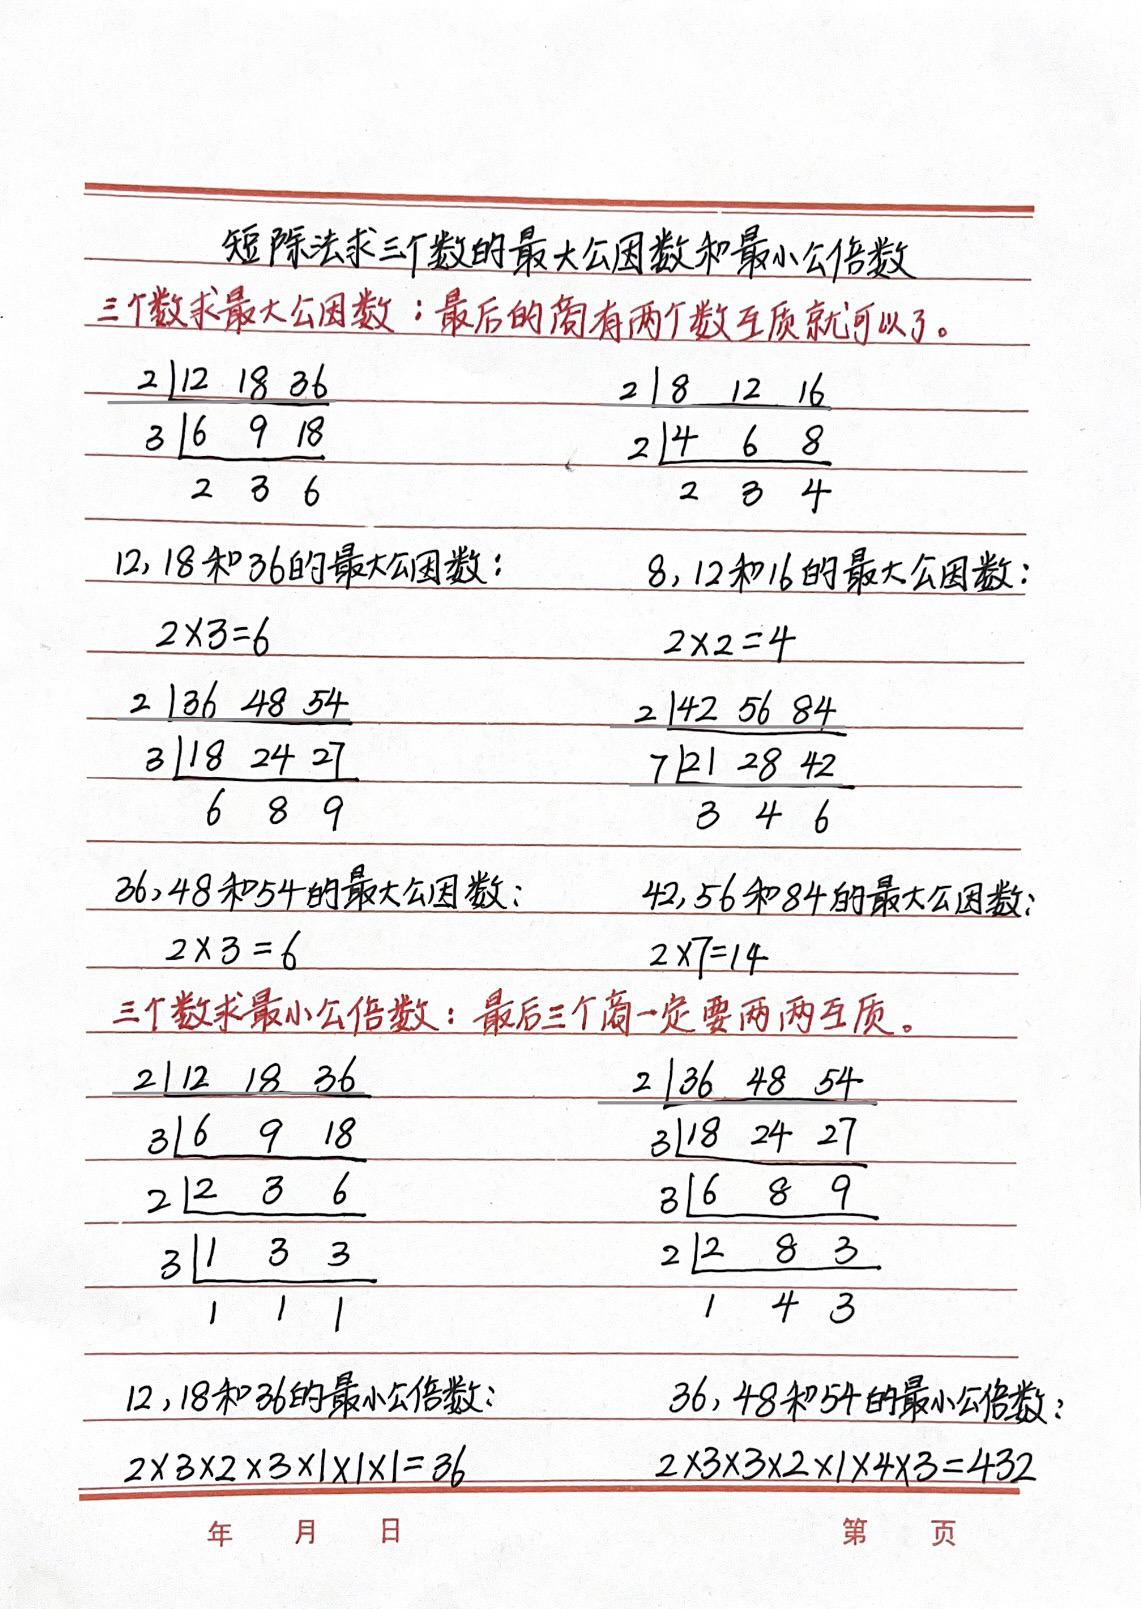 短除法求三个数的最大公因数和最小公倍数
三个数求最大公因数：最后的商有两个数互质就可以了。
2 12 18 36
3 6 9 18
2 3 6
2 8 12 16
2 4 6 8
2 3 4
12，18和36的最大公因数：
2×3=6
8，12和16的最大公因数：
2×2=4
2 36 48 54
3 18 24 27
6 8 9
2 42 56 84
7 21 28 42
3 4 6
36，48和54的最大公因数：
2×3=6
42，56和84的最大公因数：
2×7=14
三个数求最小公倍数：最后三个商一定要两两互质。
2 12 18 36
3 6 9 18
2 2 3 6
3 1 3 3
1 1 1
2 36 48 54
3 18 24 27
3 6 8 9
2 2 8 3
1 4 3
12，18和36的最小公倍数：
2×3×2×3×1×1×1=36
36，48和54的最小公倍数：
2×3×3×2×1×4×3=432
年 月 日
第 页